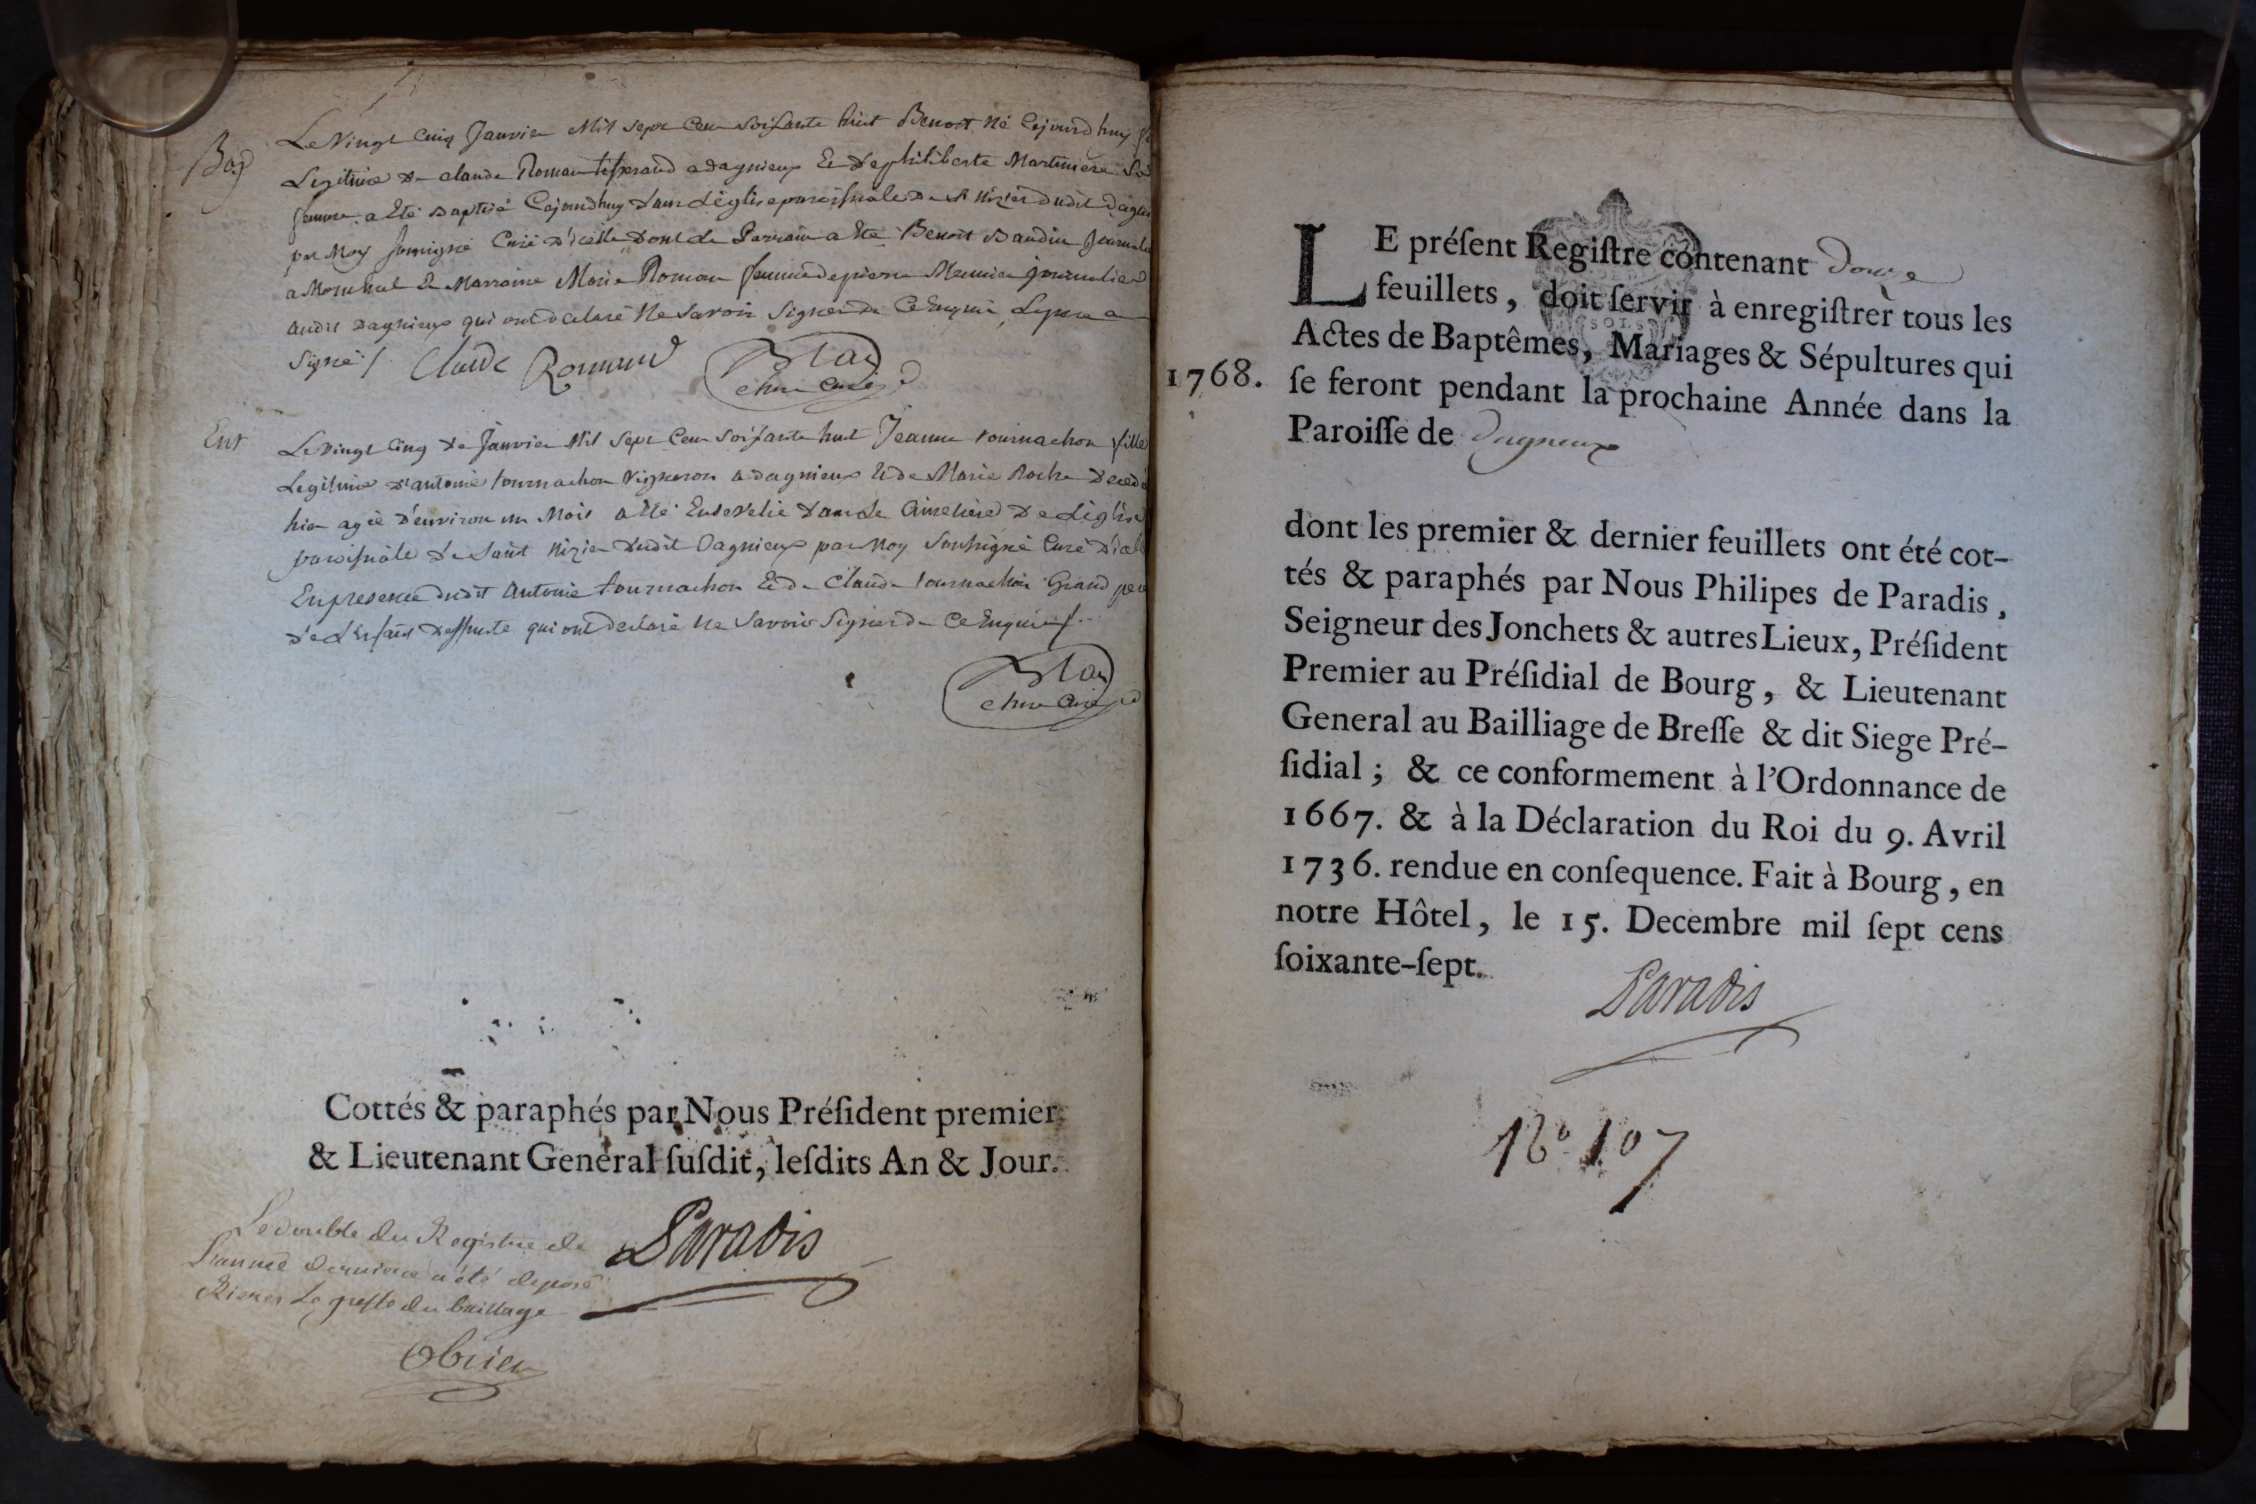 Bap
Le Vingt Cinq Janvier Mil sept Cent soixante huit Benoit né Cejourd huy
Legitime de claude Roman tisserand a dagnieux Et de philiberte Martiniere
femme a Eté Baptisé Cejourdhuy dans L'église paroissiale de St Nizier dudit
par Moy soussigné Curé d'icelle dont le Parrain a Eté Benoit Baudin
a Montluel Et Marraine Marie Roman femme de pierre Meunier journalier
audit Dagnieux qui ont declaré Ne Savoir Signer de Ce Enquis, Le pere a
Signé /. Claude Romand
Curé
Ent
Le Vingt Cinq de Janvier Mil Sept Cent Soixante huit Jeanne tournachon fille
Legitime d'antoine tournachon Vigneron a dagnieux Et de Marie Roche
hier agée d'environ un Mois a Eté Ensevelie dans Le Cimetiere De L'église
paroissiale de Saint Nizier dudit Dagnieux par Moy Soussigné Curé
En presence dudit Antoine tournachon Et de Claude tournachon Grand pere
de L'Enfant deffunte qui ont declaré Ne Savoir Signer de Ce Enquis /.
Curé
Cottés & paraphés par Nous Préſident premier
& Lieutenant General ſuſdit, leſdits An & Jour.
Paradis
Le double du Registre de
L'année derniere a été deposé
Riere Le greffe du bailliage
LE préſent Regiſtre contenant douze
feuillets, doit ſervir à enregiſtrer tous les
Actes de Baptêmes, Mariages & Sépultures qui
1768. ſe feront pendant la prochaine Année dans la
Paroiſſe de dagneux
dont les premier & dernier feuillets ont été cot-
tés & paraphés par Nous Philipes de Paradis,
Seigneur des Jonchets & autres Lieux, Préſident
Premier au Préſidial de Bourg, & Lieutenant
General au Bailliage de Breſſe & dit Siege Pré-
ſidial ; & ce conformement à l'Ordonnance de
1667. & à la Déclaration du Roi du 9. Avril
1736. rendue en conſequence. Fait à Bourg, en
notre Hôtel, le 15. Decembre mil ſept cens
ſoixante-ſept.
Paradis
No 107